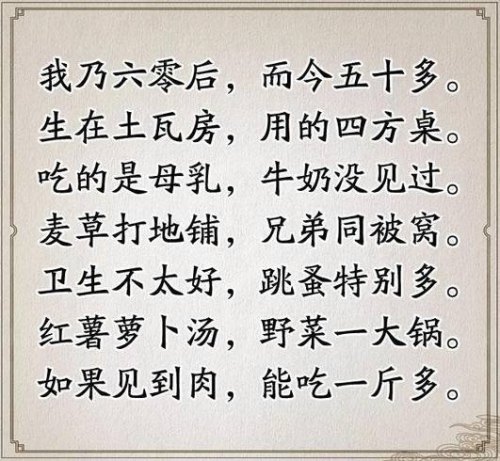 我乃六零后，而今五十多。
生在土瓦房，用的四方桌。
吃的是母乳，牛奶没见过。
麦草打地铺，兄弟同被窝。
卫生不太好，跳蚤特别多。
红薯萝卜汤，野菜一大锅。
如果见到肉，能吃一斤多。